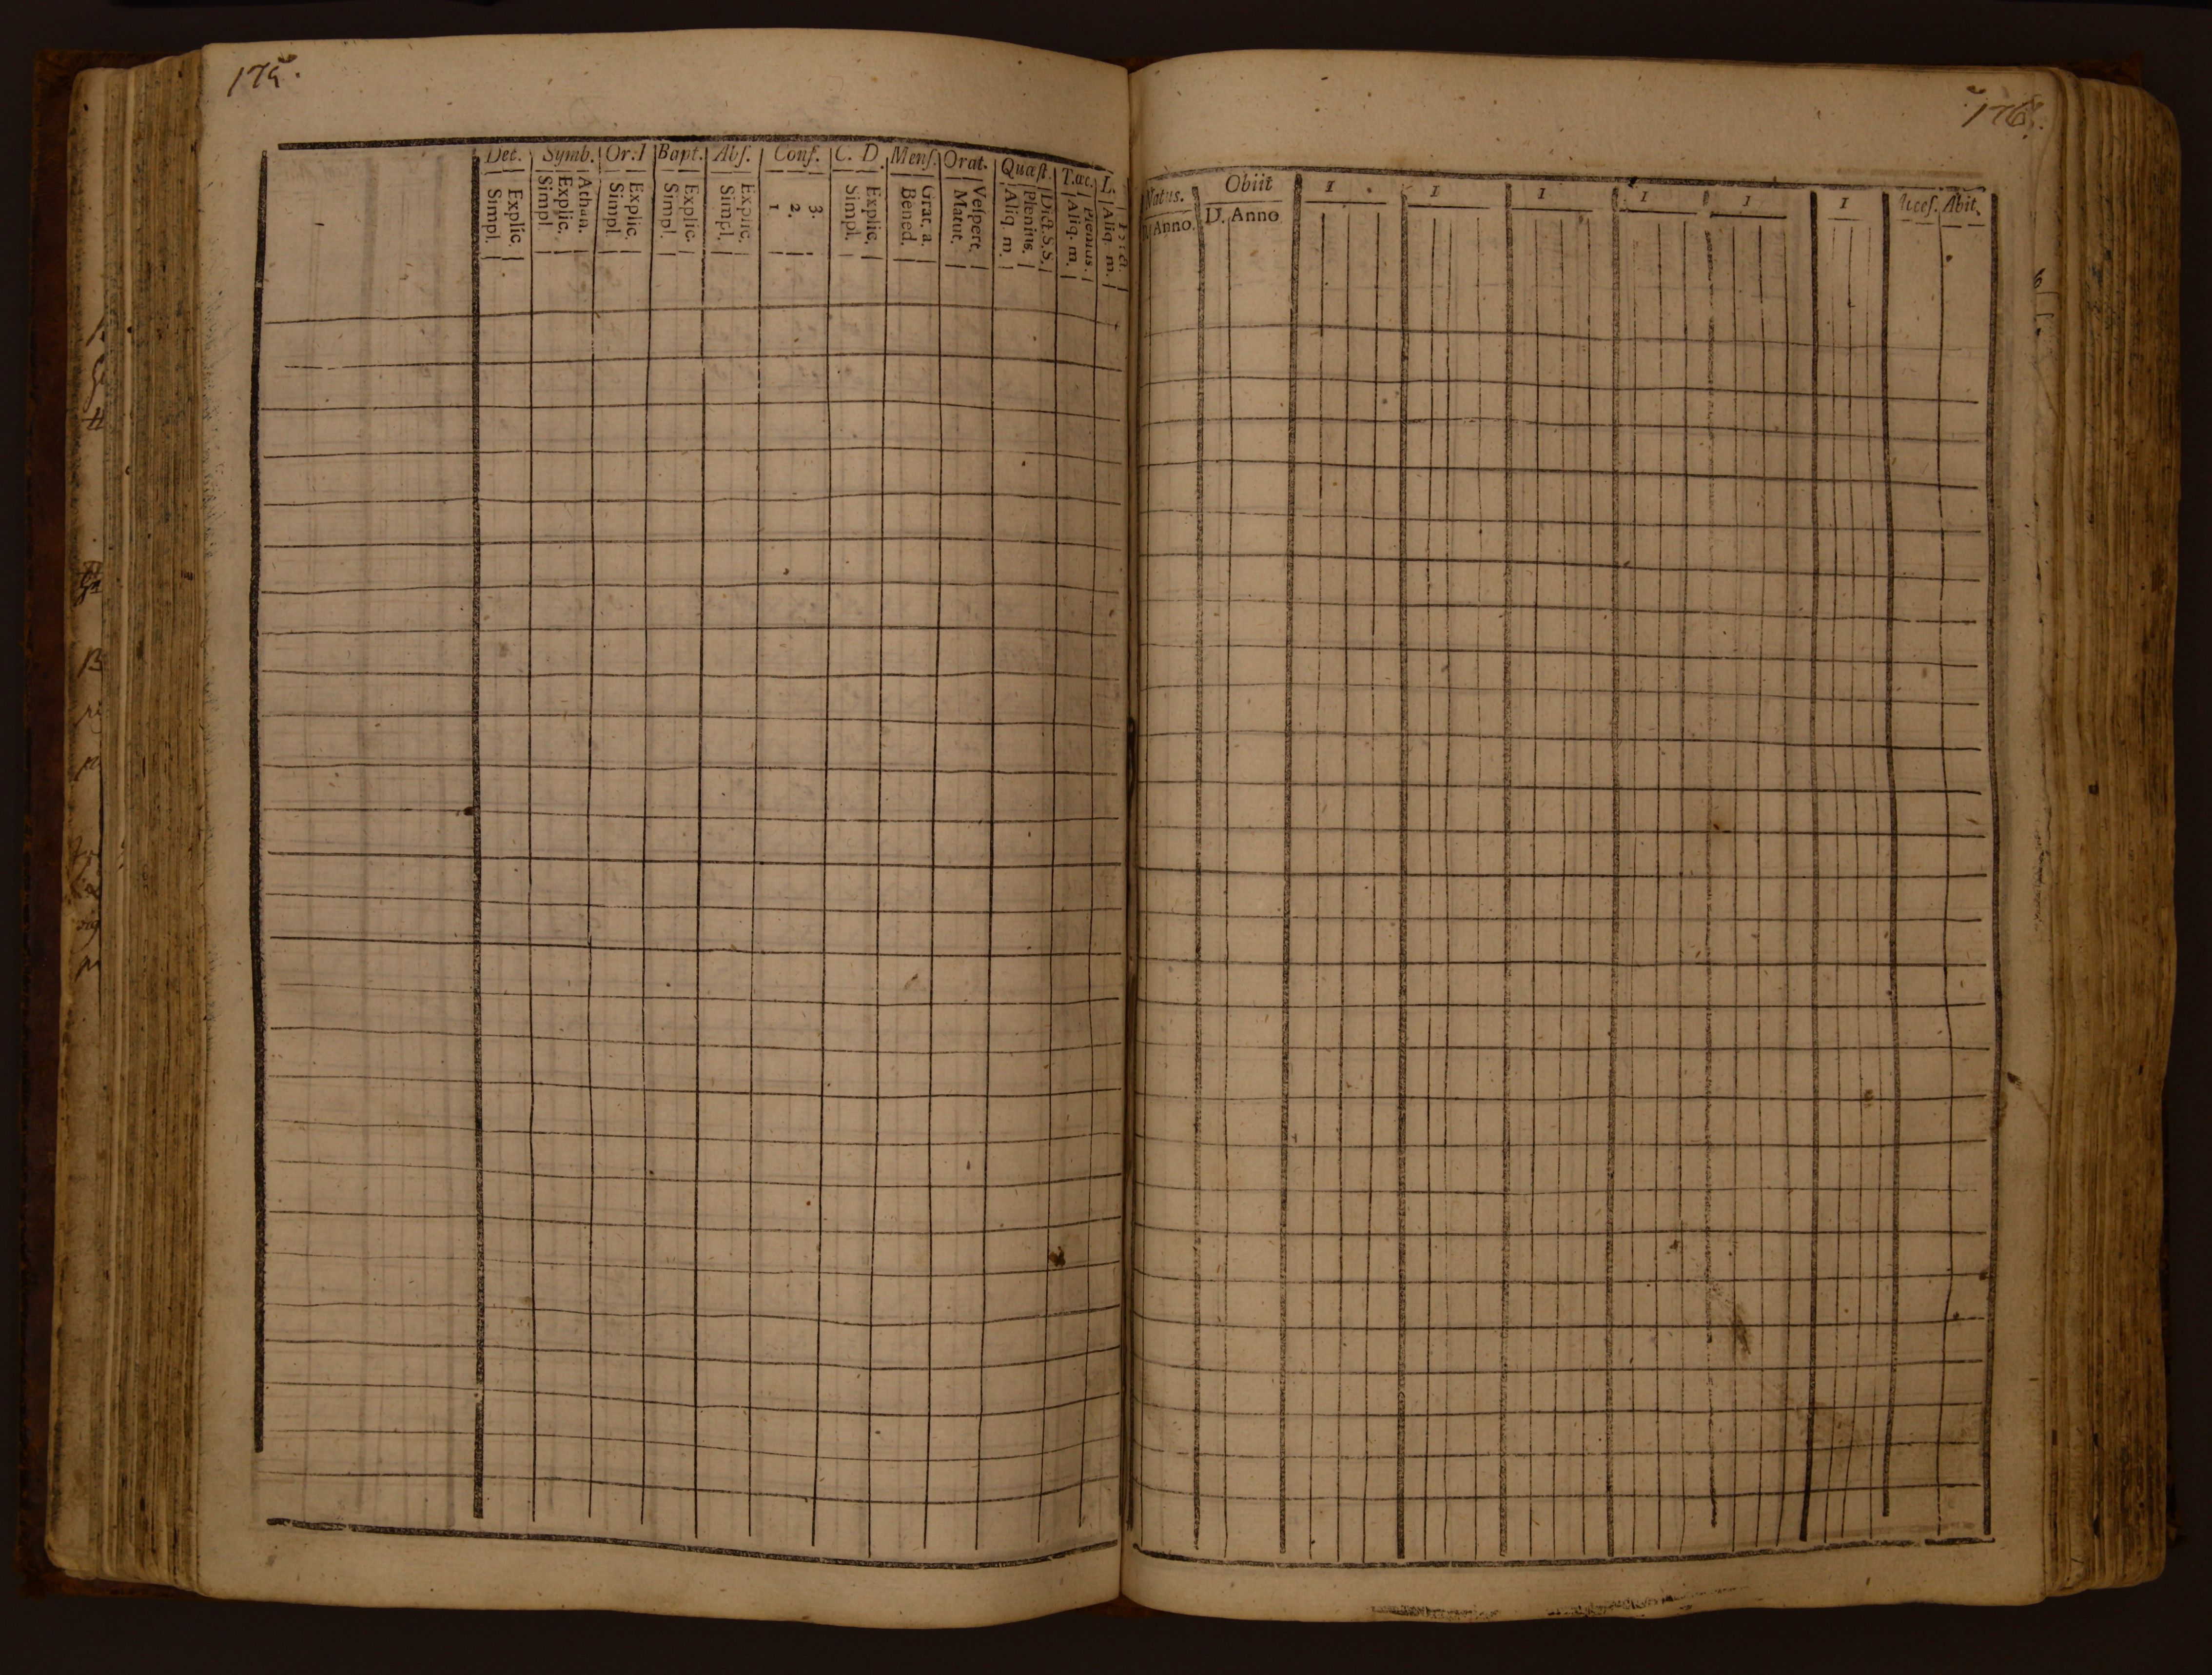 175.
176.
Dec. Symb. Or. I Bapt. Abſ. Conf. C. D. Menſ. Orat. Quæſt. T.œc. L.
Explic. Simpl.
Athan. Explic. Simpl.
Explic. Simpl.
Explic. Simpl.
Explic. Simpl.
3. 2. 1
Explic. Simpl.
Grat. a. Bened.
Veſpert. Matut.
Dict.S.S. Plenius. Aliq. m.
Plenius. Aliq. m.
Aliq. m.
Natus. Obiit I I I I I I Acceſ. Abit.
Anno. D. Anno